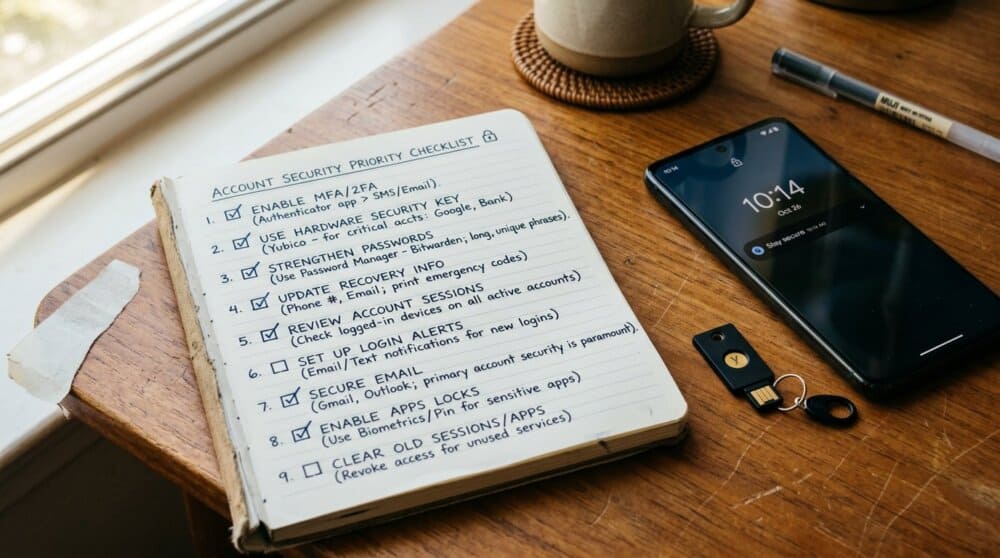 ACCOUNT SECURITY PRIORITY CHECKLIST
1. ENABLE MFA/2FA
(Authenticator app > SMS/Email).
2. USE HARDWARE SECURITY KEY
(Yubico – for critical accts: Google, Bank)
3. STRENGTHEN PASSWORDS
(Use Password Manager – Bitwarden; long, unique phrases).
4. UPDATE RECOVERY INFO
(Phone #, Email; print emergency codes)
5. REVIEW ACCOUNT SESSIONS
(Check logged-in devices on all active accounts)
6. SET UP LOGIN ALERTS
(Email/Text notifications for new logins)
7. SECURE EMAIL
(Gmail, Outlook; primary account security is paramount).
8. ENABLE APPS LOCKS
(Use Biometrics/Pin for sensitive apps)
9. CLEAR OLD SESSIONS/APPS
(Revoke access for unused services)
MUJI
10:14
10:14
Oct 26
Stay secure
y